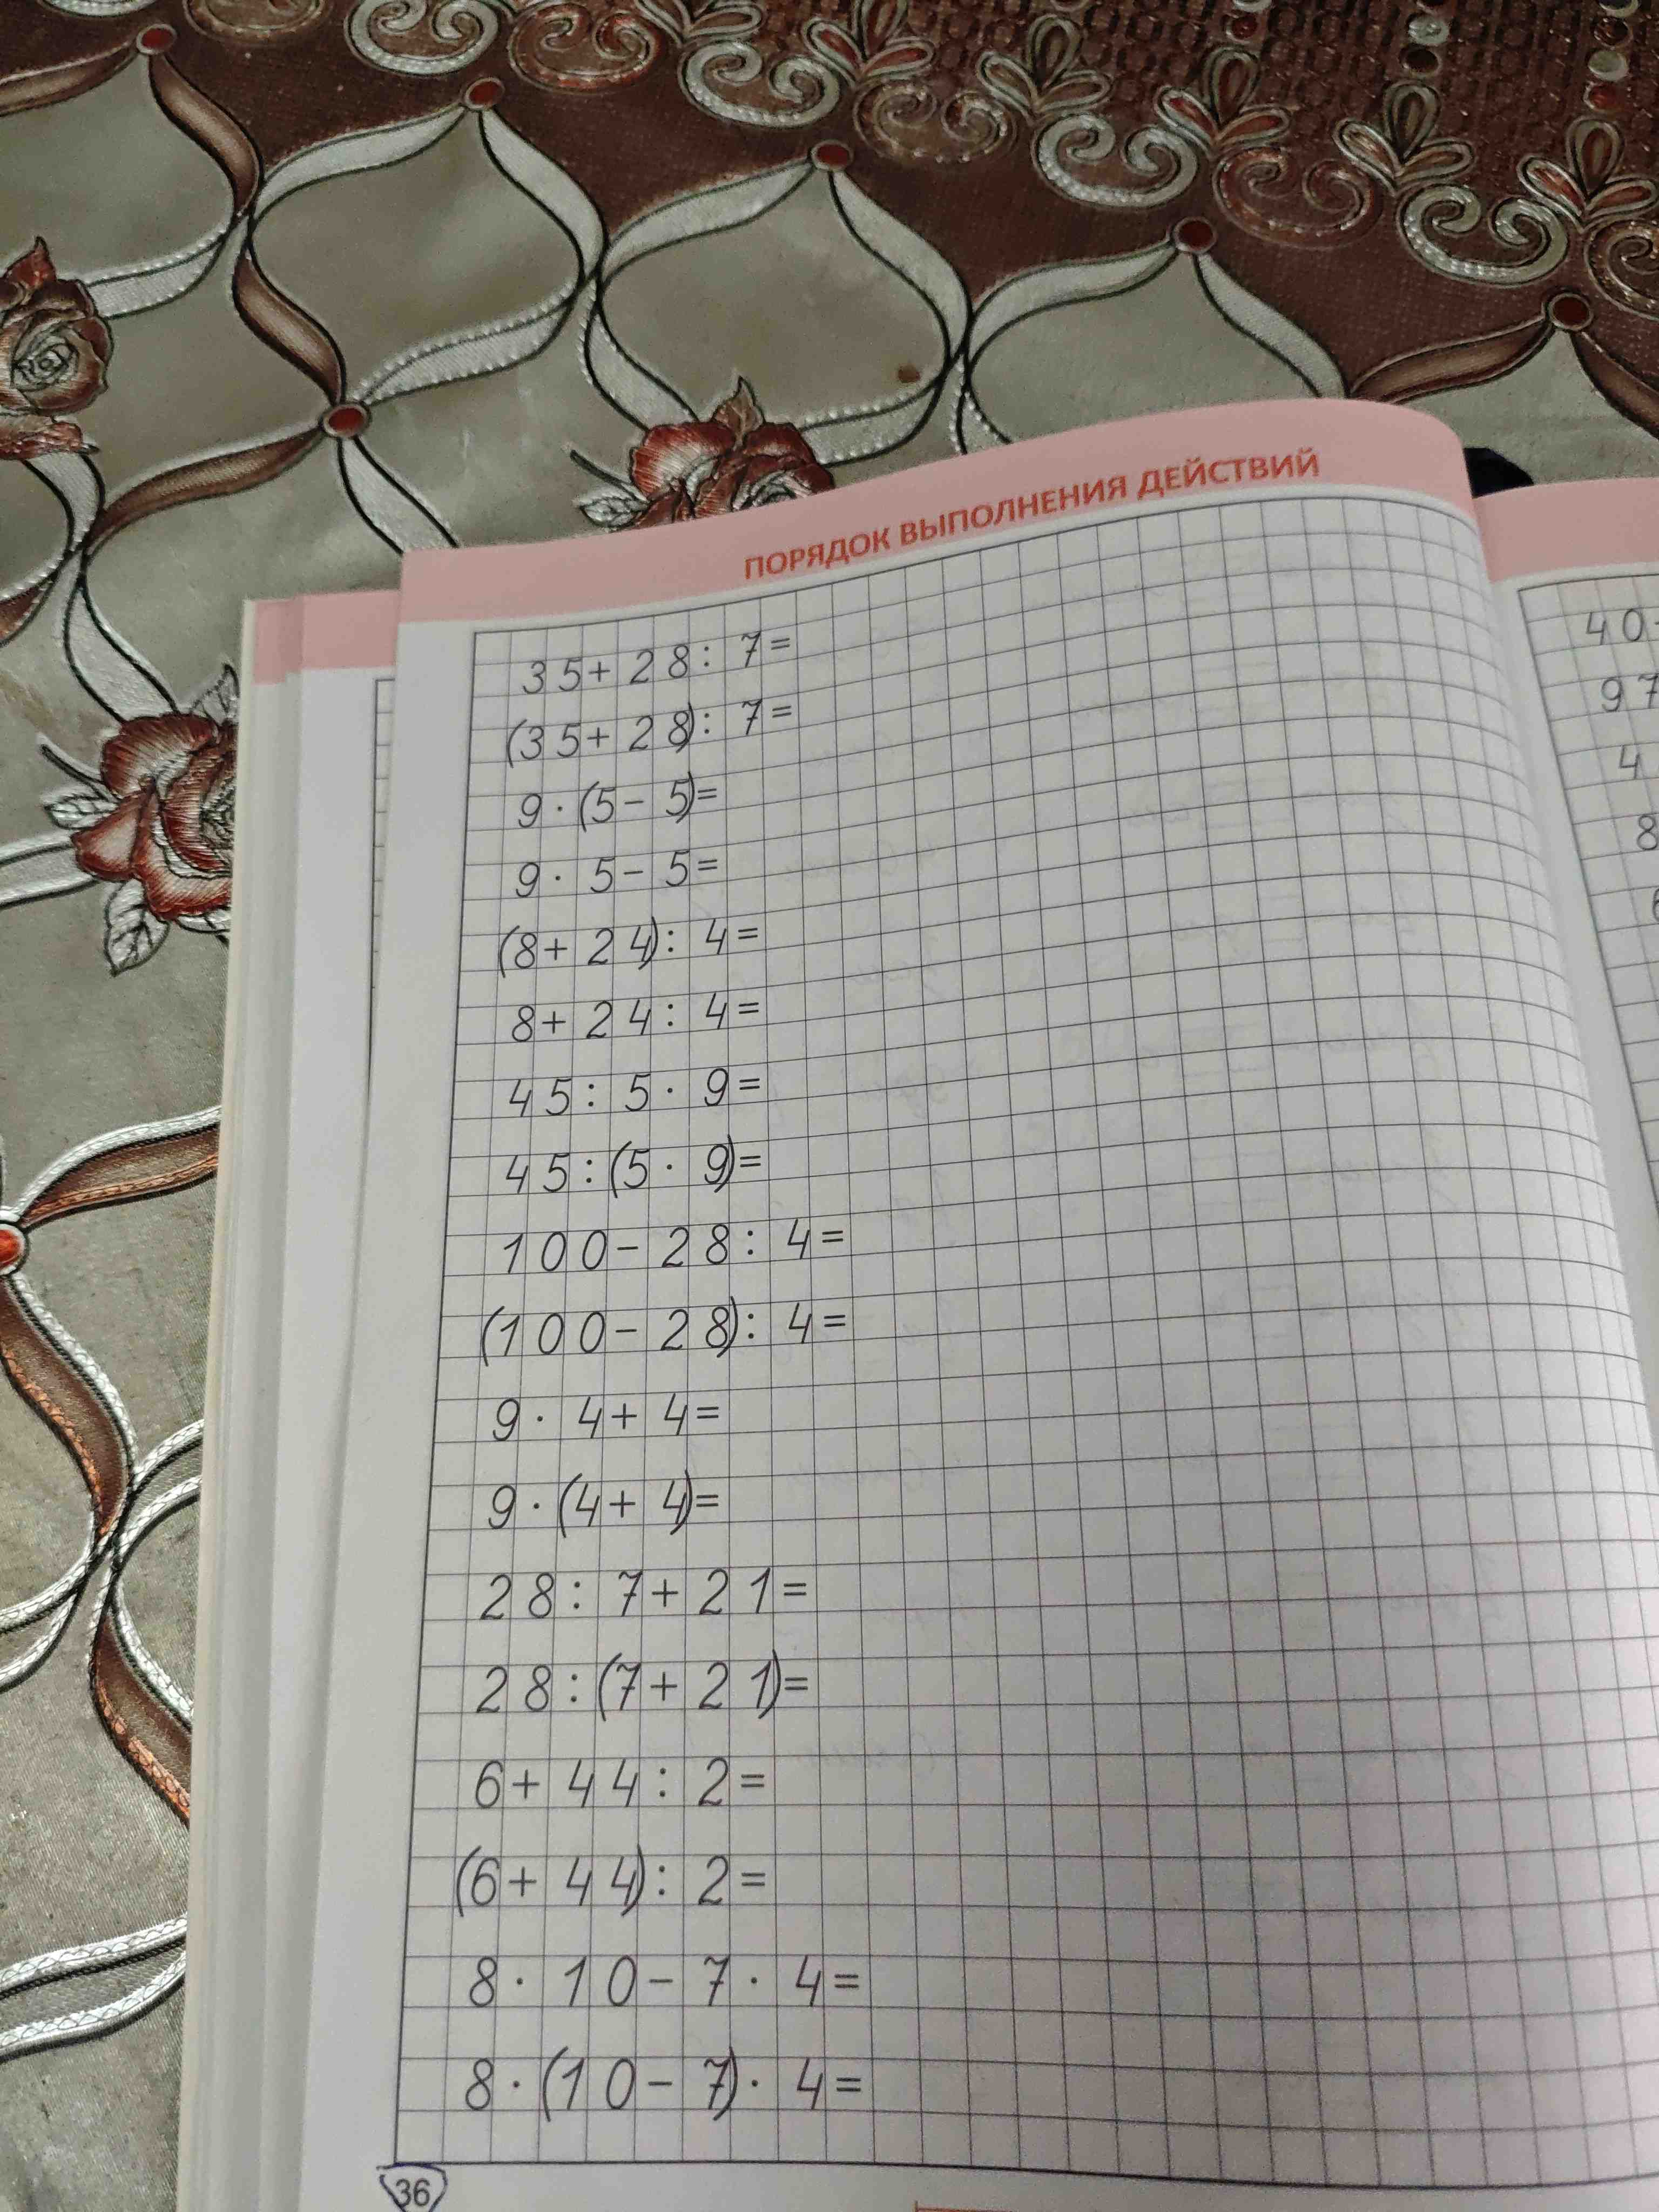 ПОРЯДОК ВЫПОЛНЕНИЯ ДЕЙСТВИЙ
35+28:7=
(35+28):7=
9·(5-5)=
9·5-5=
(8+24):4=
8+24:4=
45:5·9=
45:(5·9)=
100-28:4=
(100-28):4=
9·4+4=
9·(4+4)=
28:7+21=
28:(7+21)=
6+44:2=
(6+44):2=
8·10-7·4=
8·(10-7)·4=
36
40
97
4
8